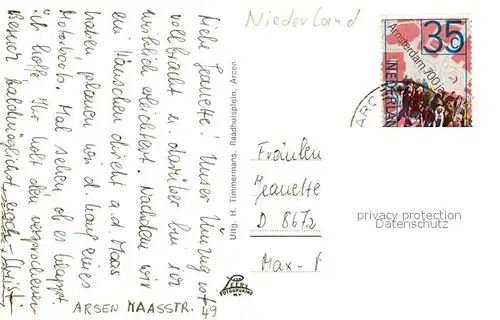 Niederland
35
c
Amsterdam 700 ja
NEDERLAND
ARC
Liebe Jeanette! Unser Umzug ist
vollbracht u. darüber bin ich
wirklich erleichtert. Nachdem wir
ein Häuschen direkt a.d. Maas
haben, planen wir d. Kauf eines
Motorboots. Mal sehen, ob es klappt.
Ich hoffe Ihr holt den versprochenen
Besuch baldmöglichst nach
ARSEN MAASSTR. 49
Uitg. H. Timmermans, Raadhuisplein, Arcen
FOTODRUKKERIJ
Fräulein
Jeanette
D 8672
Max-
privacy protection
Datenschutz